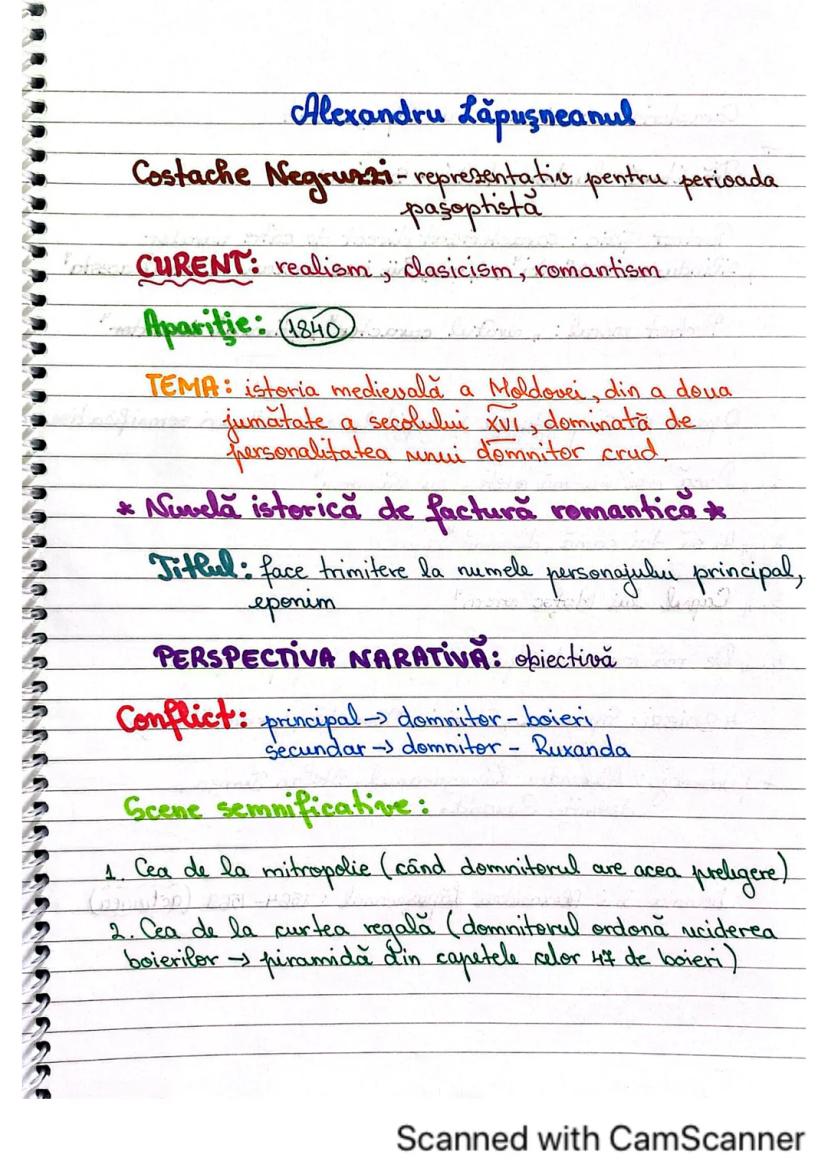 Alexandru Lăpușneanul
Costache Negruzzi - reprezentativ pentru perioada
pașoptistă
CURENT: realism, clasicism, romantism
Apariție: 1840
TEMA: istoria medievală a Moldovei, din a doua
jumătate a secolului XVI, dominată de
personalitatea unui domnitor crud.
* Nuvelă istorică de factură romantică *
Titlul: face trimitere la numele personajului principal,
eponim
PERSPECTIVA NARATIVĂ: obiectivă
Conflict: principal → domnitor - boieri
secundar → domnitor - Ruxanda
Scene semnificative:
1. Cea de la mitropolie (când domnitorul are acea prelegere)
2. Cea de la curtea regală (domnitorul ordonă uciderea
boierilor → piramidă din capetele celor 47 de boieri)
Scanned with CamScanner